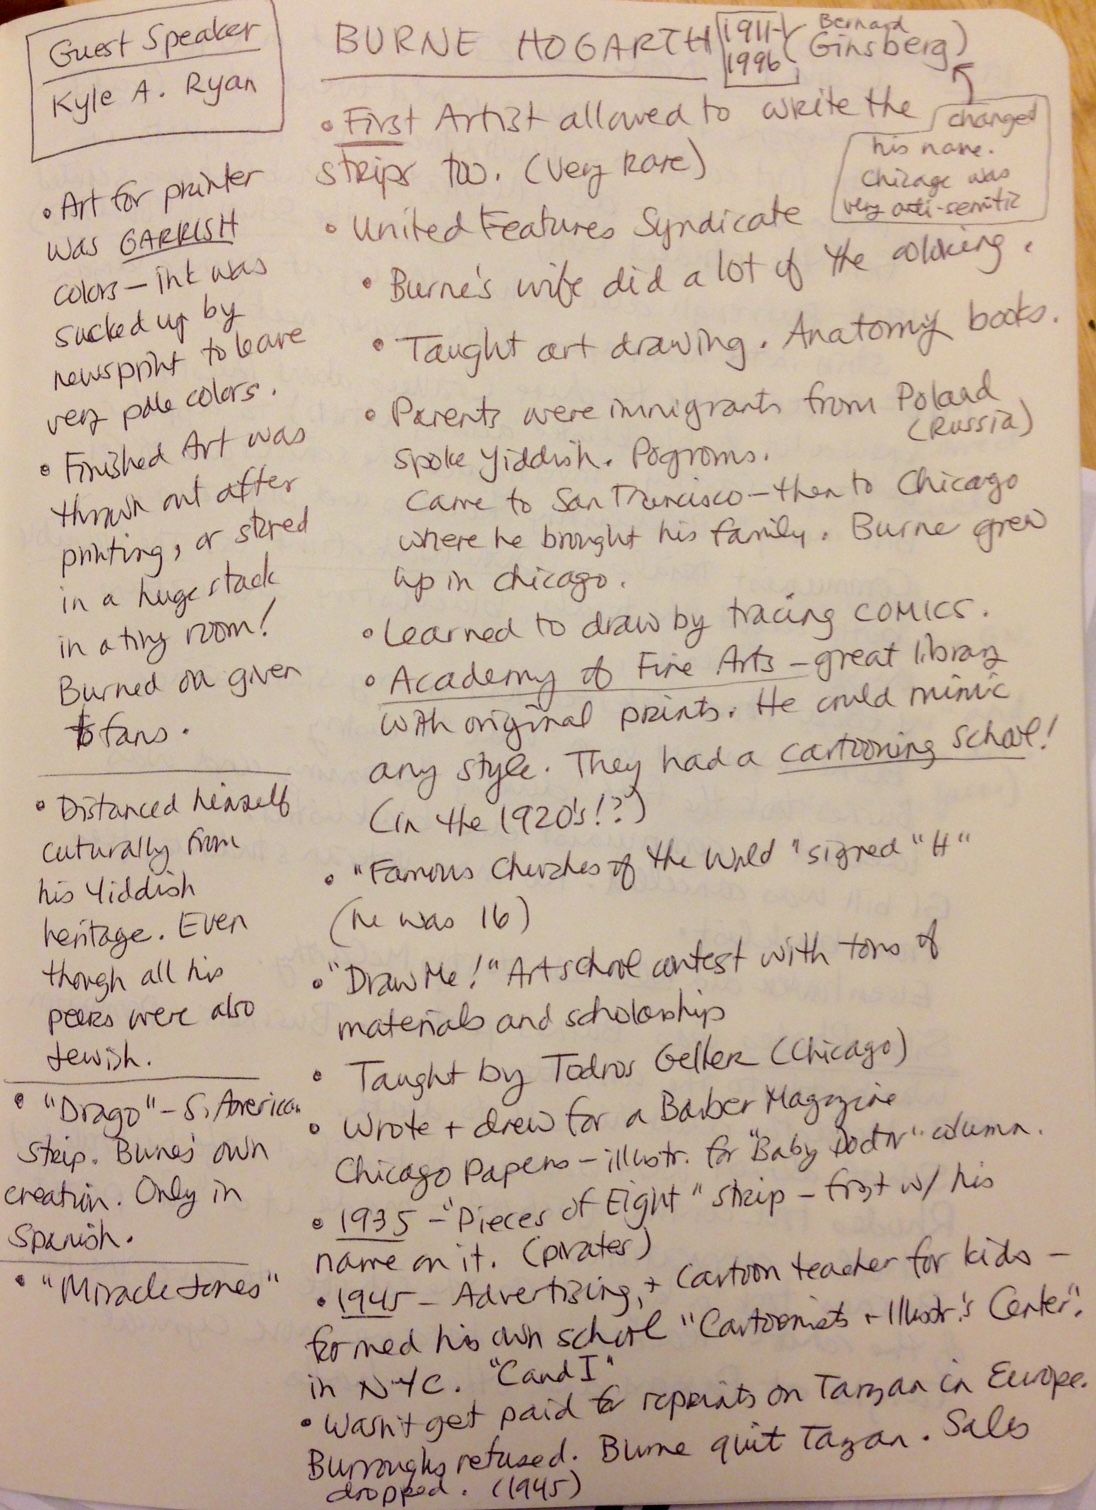 Guest Speaker
Kyle A. Ryan
• Art for printer
was GARRISH
colors — ink was
sucked up by
newsprint to leave
very pale colors.
• Finished Art was
thrown out after
printing, or stored
in a huge stack
in a tiny room!
Burned or given
to fans.
• Distanced himself
culturally from
his Yiddish
heritage. Even
though all his
peers were also
Jewish.
• "Drago" – S. American
strip. Burne's own
creation. Only in
Spanish.
• "Miracle Jones"
BURNE HOGARTH 1911-1996 (Bernard Ginsberg)
changed
his name.
Chicago was
very anti-semitic
• First Artist allowed to write the
strips too. (very rare)
• United Features Syndicate
• Burne's wife did a lot of the coloring.
• Taught art drawing. Anatomy books.
• Parents were immigrants from Poland
(Russia)
spoke Yiddish. Pogroms.
Came to San Francisco – then to Chicago
where he brought his family. Burne grew
up in Chicago.
• Learned to draw by tracing COMICS.
• Academy of Fine Arts – great library
with original prints. He could mimic
any style. They had a cartooning school!
(in the 1920's!?)
• "Famous Churches of the World" signed "H"
(he was 16)
• "Draw Me!" Art school contest with tons of
materials and scholarship
• Taught by Todros Geller (Chicago)
• Wrote + drew for a Barber Magazine
Chicago Papers – illustr. for "Baby Doctor" column.
• 1935 – "Pieces of Eight" strip – first w/ his
name on it. (pirates)
• 1945 – Advertising, + Cartoon teacher for kids –
formed his own school "Cartoonists + Illustr.'s Center".
in NYC. "C and I"
• Wasn't get paid for reprints on Tarzan in Europe.
Burroughs refused. Burne quit Tarzan. Sales
dropped. (1945)